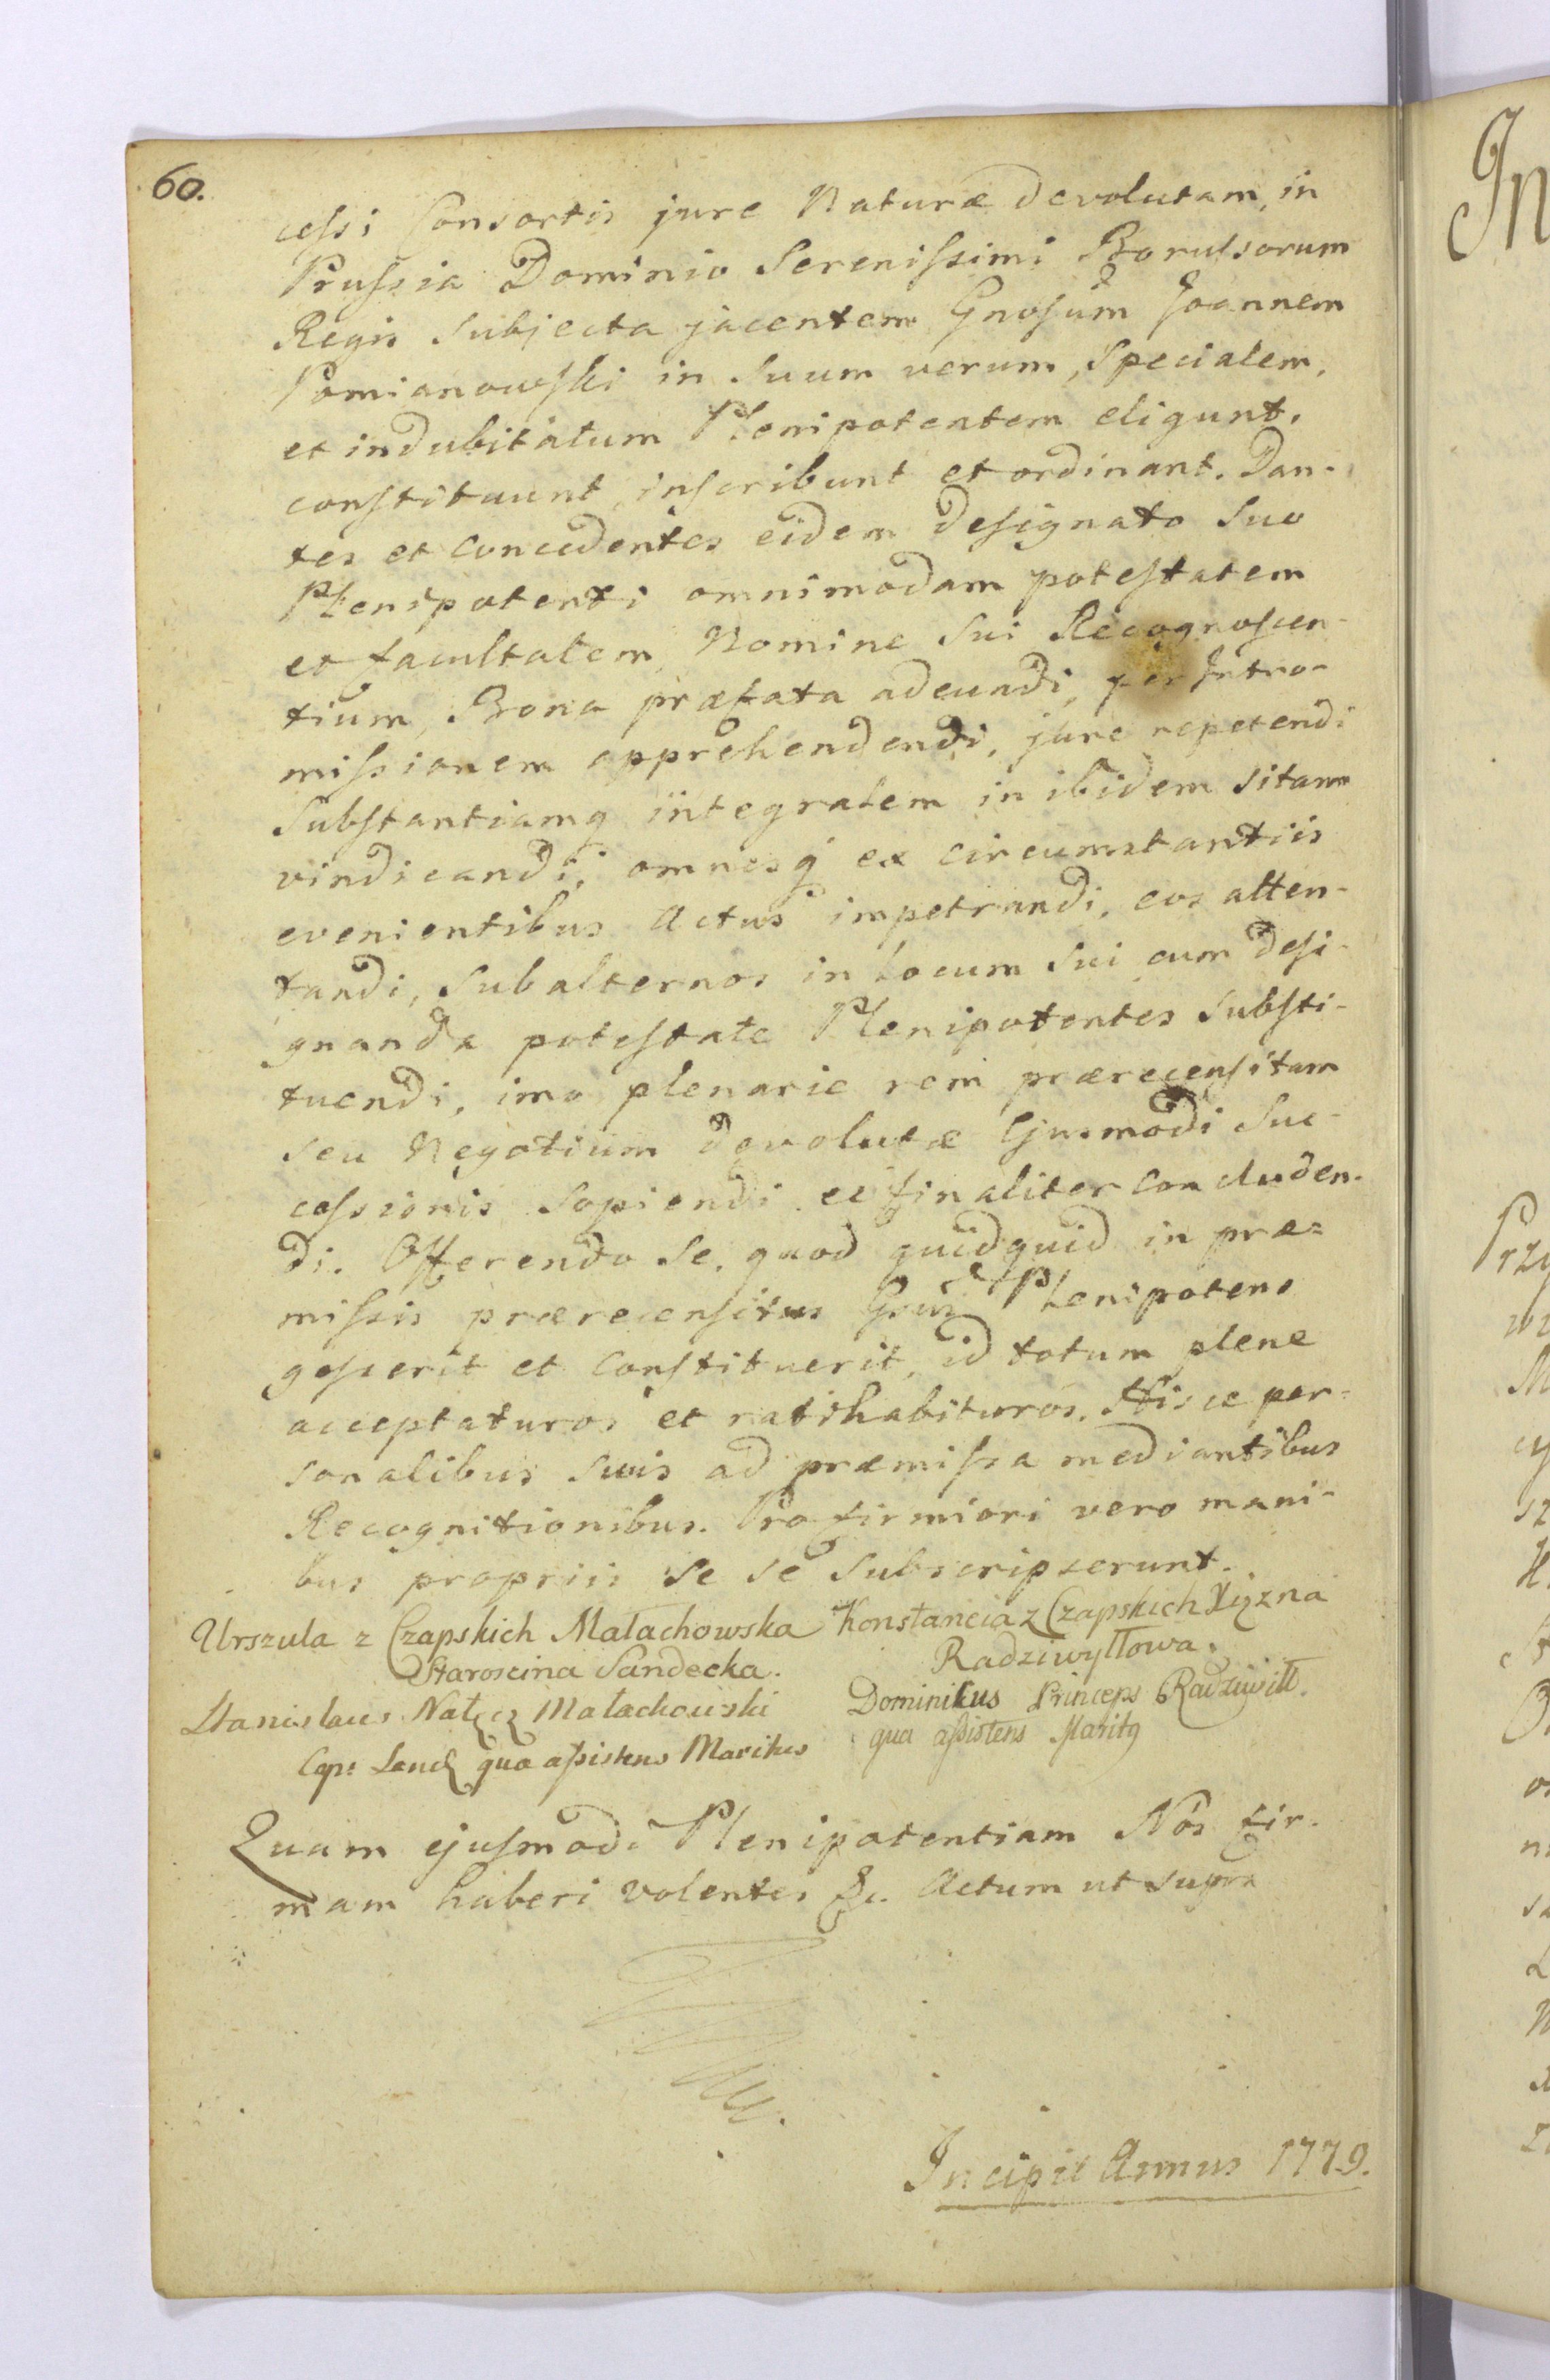 60.
cessi Consortis jure Naturæ devolutam, in
Prussia Dominio Serenissimi Borussorum
Regis Subjecta jacentem Gnosum Joannem
Pomianowski in Suum verum, Specialem,
et indubitatum Plenipotentem eligunt,
constituunt, inscribunt et ordinant. Dan-
tes et concedentes eidem designato Suo
Plenipotenti omnimodam potestatem
et facultatem, Nomine Sui Recognoscen-
tium, Bona præfata adeundi, per Intro-
missionem apprehendendi, jure repetendi
Substantiamq integralem in ibidem sitam
vindicandi, omnesq ex circumstantiis
evenientibus Actus impetrandi, eos atten-
tandi, Subalternos in Locum Sui cum desi-
gnanda potestate Plenipotentes Substi-
tuendi, imo plenarie rem prærecensitam
seu Negotium devolutæ Ejusmodi Suc-
cessionis Sopiendi et finaliter concluden-
di. Offerendo Se, quod quidquid in præ=
missis prærecensitus Gsus Plenipotens
gesserit et Constituerit, id totum plene
acceptaturos et ratihabituros. Hisce per=
sonalibus suis ad præmissa mediantibus
Recognitionibus. Pro firmiori vero mani-
bus propriis Se se Subscripserunt.
Urszula z Czapskich Małachowska Konstancia z Czapskich Xiązna
Staroscina Sandecka. Radziwyłłowa.
Stanislaus Nałęcz Małachowski Dominikus Princeps Radziwiłł.
Cap: Sand: qua assistens Maritus qua assistens Maritq
Quam ejusmodi Plenipotentiam Nos fir-
mam haberi volentes &c. Actum ut supra
Incipit Annus 1779.